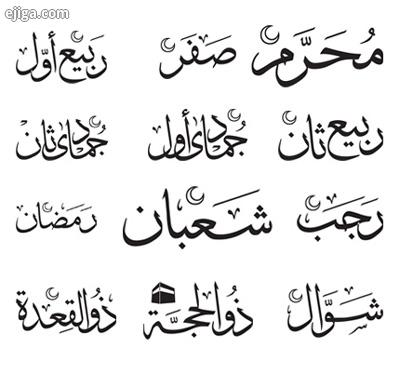 ejiga.com
مُحَرَّم صَفَر رَبيع أوّل
رَبيع ثان جُمادى أول جُمادى ثان
رَجَب شَعبان رَمَضان
شَوّال ذُوالحجّة ذُوالقِعدة